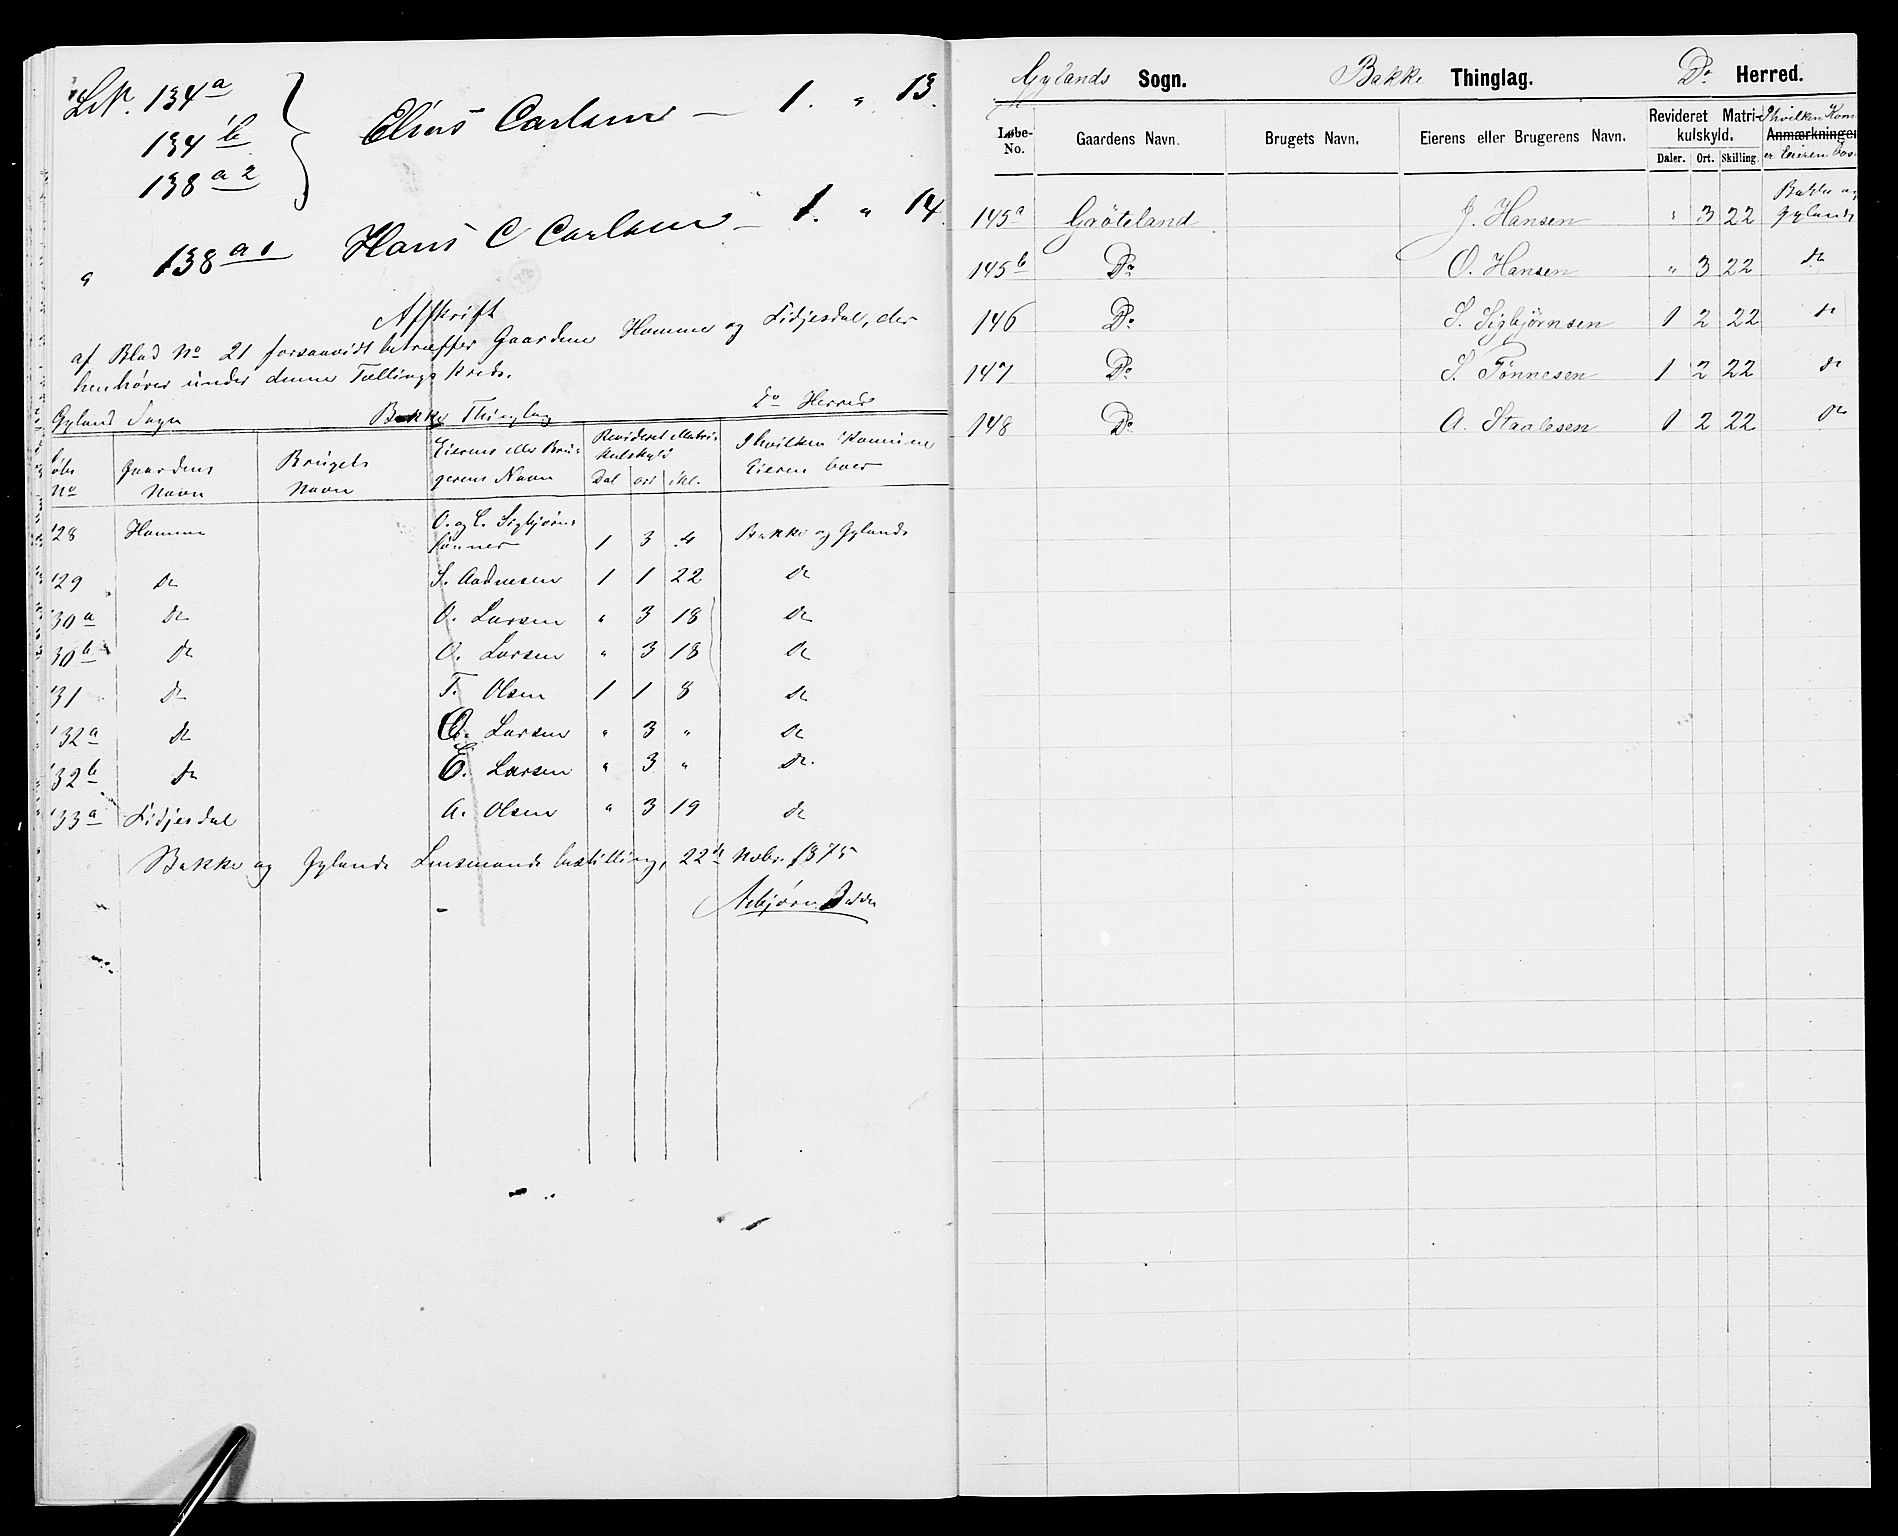 LNo. 134a
134b } Elias Carlsen — 1. " 13.
138a2
" 138a1 Hans C Carlsen — 1. " 14.
Afskrift
af Blad No 21 forsaavidt betræffer Gaardene Homme og Lidjesdal, der
henhører under denne Tællingskreds.
Gyland Sogn Bakke Thinglag Do Herred
Løbe No Gaardens Navn Brugets Navn Eierens eller Brugerens Navn Revideret Matrikulskyld Dal ort skl. I hvilken Komune Eieren boer
128 Homme O. og E. Sigbjørns
sønner 1 3 4 Bakke og Gylands
129 do S. Aadnesen 1 1 22 do
130a do O. Larsen " 3 18 do
130b do O. Larsen " 3 18 do
131 do T. Olsen 1 1 8 do
132a do O. Larsen " 3 " do
132b do E. Larsen " 3 " do.
133a Lidjesdal A. Olsen " 3 19 do
Bakke og Gylands Lensmandsbestilling, 22de Novbr. 1875
Asbjørn
Gylands Sogn. Bakke Thinglag. Do Herred.
Løbe-No. Gaardens Navn. Brugets Navn. Eierens eller Brugerens Navn. Revideret Matrikulskyld. Daler. Ort. Skilling. Anmærkninger I hvilken Kom er Eieren bos
145a Grøteland J. Hansen " 3 22 Bakke og Gylands
145b Do O. Hansen " 3 22 do
146 Do S. Sigbjørnsen 1 2 22 do
147 Do S. Tønnesen 1 2 22 do
148 Do A. Staalesen 1 2 22 do